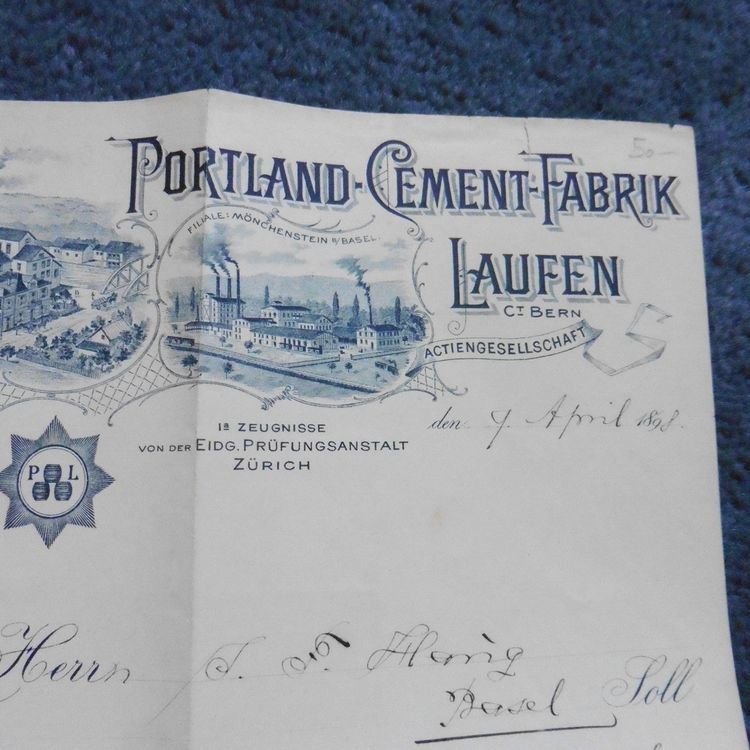 50—
PORTLAND-CEMENT-FABRIK
LAUFEN
CT BERN
ACTIENGESELLSCHAFT
FILIALE: MÖNCHENSTEIN B/BASEL.
Ia ZEUGNISSE
VON DER EIDG. PRÜFUNGSANSTALT
ZÜRICH
den 9. April 1898.
P L
Herrn
Basel Soll